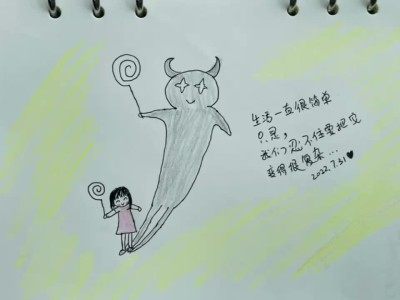 生活一直很简单
只是，
我们忍不住要把它
变得很复杂...
2022.7.31♥